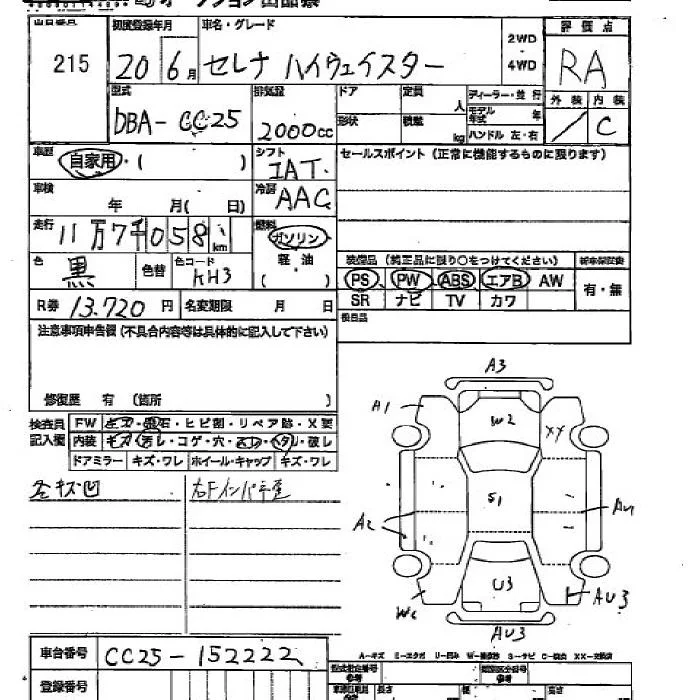 出品番号 初度登録年月 車名・グレード 2WD 評価点
215 20 6月 セレナ ハイウェイスター 4WD RA
型式 排気量 ドア 定員 人 ディーラー・並行 外装 内装
DBA-CC25 2000cc 形状 積載 kg モデル年式 年 / C
ハンドル 左・右
車歴 自家用・( ) シフト IAT セールスポイント (正常に機能するものに限ります)
車検 年 月( 日) 冷房 AAC
走行 11万7千058 km 燃料 ガソリン
軽油
( )
色 黒 色替 色コード KH3
装備品 (純正品に限り○をつけてください) 新車保証書
PS PW ABS エアB AW 有・無
SR ナビ TV カワ
R券 13.720 円 名変期限 月 日
注意事項申告欄 (不具合内容等は具体的に記入して下さい)
修復歴 有 (箇所 )
検査員記入欄 FW キズ・飛石・ヒビ割・リペア跡・X要
内装 キズ・汚レ・コゲ・穴・スレ・ヘタリ・破レ
ドアミラー キズ・ワレ ホイール・キャップ キズ・ワレ
各キズ凹
A3
A1 W2 XX
S1
A2
U3 AU3
AU3
A-キズ
車台番号 CC25-152222
登録番号
長さ 幅 高さ